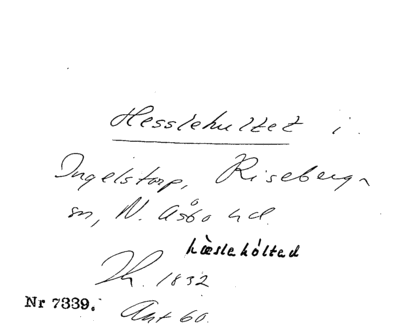 Hesslehultet i
Ingelstorp, Riseberga
sn, N. Åsbo hd.
hæslehólted
Th. 1832
Nr 7339.
Ant 60.